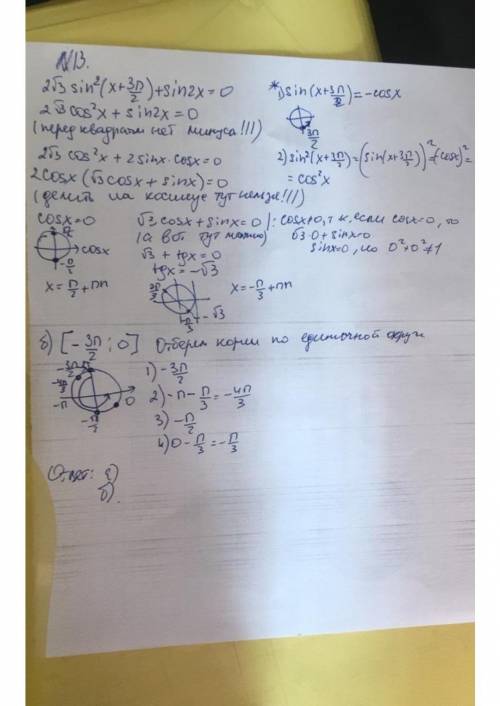 №13.
2√3 sin²(x+3п/2)+sin2x=0
2√3 cos²x + sin2x=0
(перед квадратом нет минуса!!!)
2√3 cos²x+2sinx·cosx=0
2cosx(√3cosx+sinx)=0
(делить на косинус тут нельзя!!!)
* 1) sin(x+3п/2)=-cosx
3п/2
2) sin²(x+3п/2)=(sin(x+3п/2))²=(-cosx)²=
=cos²x
cosx=0
п/2
cosx
-п/2
x=п/2+пn
√3cosx+sinx=0 |:cosx≠0, т.к. если cosx=0, то
(а вот тут можно) √3·0+sinx=0
√3+tgx=0 sinx=0, но 0²+0²≠1
tgx=-√3
2п/3
-п/3
-√3
x=-п/3+пn
б) [-3п/2; 0] Отберем корни по единичной окр
-3п/2
-4п/3
-п
0
-п/2
1) -3п/2
2) -п-п/3=-4п/3
3) -п/2
4) 0-п/3=-п/3
Ответ: а)
б)